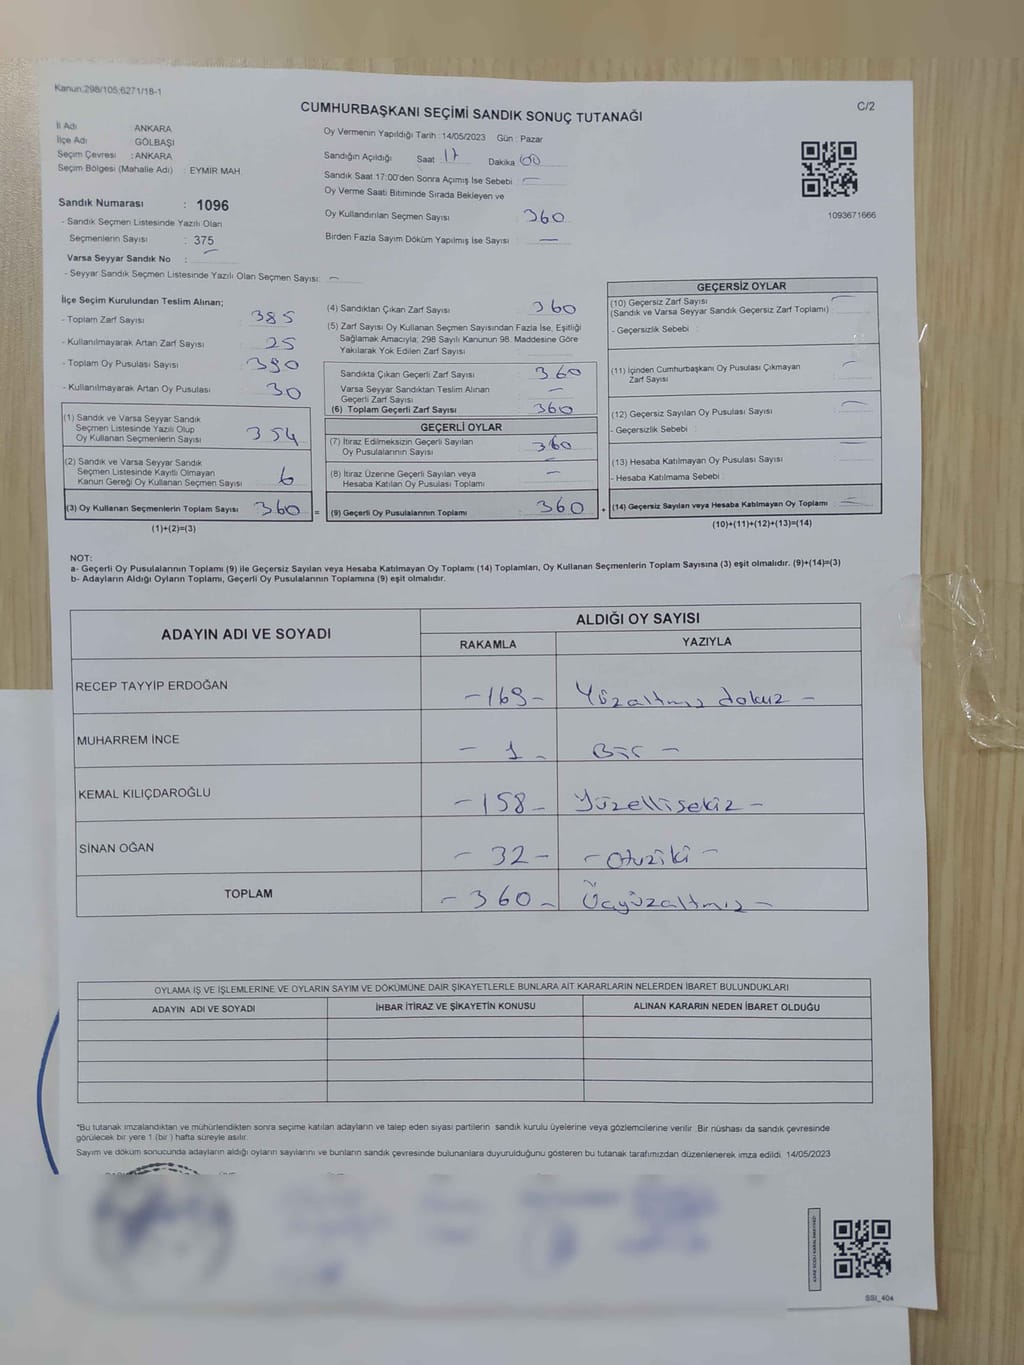 Kanun:298/105;6271/18-1
CUMHURBAŞKANI SEÇİMİ SANDIK SONUÇ TUTANAĞI
C/2
İl Adı ANKARA
İlçe Adı : GÖLBAŞI
Seçim Çevresi : ANKARA
Seçim Bölgesi (Mahalle Adı) : EYMİR MAH.
Sandık Numarası : 1096
- Sandık Seçmen Listesinde Yazılı Olan
Seçmenlerin Sayısı : 375
Varsa Seyyar Sandık No : -
- Seyyar Sandık Seçmen Listesinde Yazılı Olan Seçmen Sayısı: -
Oy Vermenin Yapıldığı Tarih :14/05/2023 Gün : Pazar
Sandığın Açıldığı Saat : 17 Dakika : 00
Sandık Saat 17:00'den Sonra Açımış İse Sebebi : -
Oy Verme Saati Bitiminde Sırada Bekleyen ve
Oy Kullandırılan Seçmen Sayısı : 360
Birden Fazla Sayım Döküm Yapılmış İse Sayısı : -
1093671666
İlçe Seçim Kurulundan Teslim Alınan;
- Toplam Zarf Sayısı : 385
- Kullanılmayarak Artan Zarf Sayısı : 25
- Toplam Oy Pusulası Sayısı : 390
- Kullanılmayarak Artan Oy Pusulası : 30
(1) Sandık ve Varsa Seyyar Sandık
Seçmen Listesinde Yazılı Olup
Oy Kullanan Seçmenlerin Sayısı : 354
(2) Sandık ve Varsa Seyyar Sandık
Seçmen Listesinde Kayıtlı Olmayan
Kanun Gereği Oy Kullanan Seçmen Sayısı : 6
(3) Oy Kullanan Seçmenlerin Toplam Sayısı : 360 =
(1)+(2)=(3)
(4) Sandıktan Çıkan Zarf Sayısı : 360
(5) Zarf Sayısı Oy Kullanan Seçmen Sayısından Fazla İse, Eşitliği
Sağlamak Amacıyla; 298 Sayılı Kanunun 98. Maddesine Göre
Yakılarak Yok Edilen Zarf Sayısı :
Sandıkta Çıkan Geçerli Zarf Sayısı : 360
Varsa Seyyar Sandıktan Teslim Alınan
Geçerli Zarf Sayısı : -
(6) Toplam Geçerli Zarf Sayısı : 360
GEÇERLİ OYLAR
(7) İtiraz Edilmeksizin Geçerli Sayılan
Oy Pusulalarının Sayısı : 360
(8) İtiraz Üzerine Geçerli Sayılan veya
Hesaba Katılan Oy Pusulası Toplamı : -
(9) Geçerli Oy Pusulalarının Toplamı : 360 +
GEÇERSİZ OYLAR
(10) Geçersiz Zarf Sayısı
(Sandık ve Varsa Seyyar Sandık Geçersiz Zarf Toplamı) : -
- Geçersizlik Sebebi :
(11) İçinden Cumhurbaşkanı Oy Pusulası Çıkmayan
Zarf Sayısı : -
(12) Geçersiz Sayılan Oy Pusulası Sayısı : -
- Geçersizlik Sebebi :
(13) Hesaba Katılmayan Oy Pusulası Sayısı : -
- Hesaba Katılmama Sebebi :
(14) Geçersiz Sayılan veya Hesaba Katılmayan Oy Toplamı : -
(10)+(11)+(12)+(13)=(14)
NOT:
a- Geçerli Oy Pusulalarının Toplamı (9) ile Geçersiz Sayılan veya Hesaba Katılmayan Oy Toplamı (14) Toplamları, Oy Kullanan Seçmenlerin Toplam Sayısına (3) eşit olmalıdır. (9)+(14)=(3)
b- Adayların Aldığı Oyların Toplamı, Geçerli Oy Pusulalarının Toplamına (9) eşit olmalıdır.
ADAYIN ADI VE SOYADI
ALDIĞI OY SAYISI
RAKAMLA YAZIYLA
RECEP TAYYİP ERDOĞAN -169- Yüzaltmış dokuz -
MUHARREM İNCE - 1 - Bir -
KEMAL KILIÇDAROĞLU -158- Yüzellisekiz -
SİNAN OĞAN - 32 - - Otuziki -
TOPLAM - 360 - Üçyüzaltmış -
OYLAMA İŞ VE İŞLEMLERİNE VE OYLARIN SAYIM VE DÖKÜMÜNE DAİR ŞİKAYETLERLE BUNLARA AİT KARARLARIN NELERDEN İBARET BULUNDUKLARI
ADAYIN ADI VE SOYADI İHBAR İTİRAZ VE ŞİKAYETİN KONUSU ALINAN KARARIN NEDEN İBARET OLDUĞU
*Bu tutanak imzalandıktan ve mühürlendikten sonra seçime katılan adayların ve talep eden siyasi partilerin sandık kurulu üyelerine veya gözlemcilerine verilir. Bir nüshası da sandık çevresinde
görülecek bir yere 1 (bir ) hafta süreyle asılır.
Sayım ve döküm sonucunda adayların aldığı oyların sayılarını ve bunların sandık çevresinde bulunanlara duyurulduğunu gösteren bu tutanak tarafımızdan düzenlenerek imza edildi. 14/05/2023
SSI_404